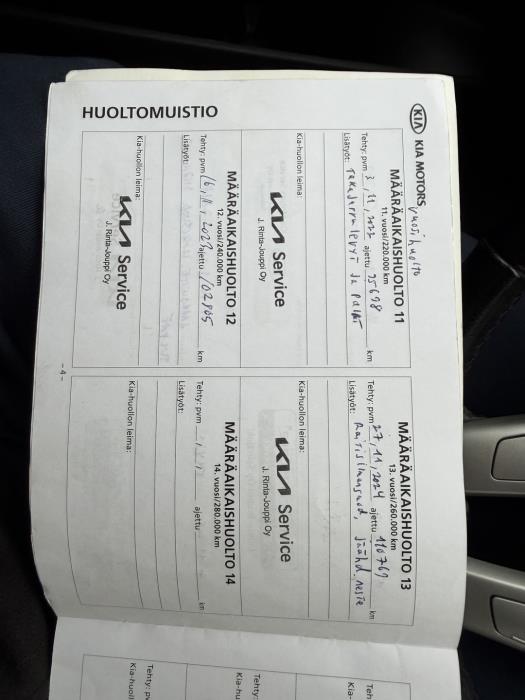 KIA KIA MOTORS
HUOLTOMUISTIO
vuosihuolto
MÄÄRÄAIKAISHUOLTO 11
11. vuosi/220.000 km
Tehty: pvm 3,11,2022 ajettu 95698 km
Lisätyöt: Takajarrulevyt ja palat
Kia-huollon leima:
KIA Service
J. Rinta-Jouppi Oy
MÄÄRÄAIKAISHUOLTO 12
12. vuosi/240.000 km
Tehty: pvm 16,11,2023 ajettu 102905 km
Lisätyöt:
Kia-huollon leima:
KIA Service
J. Rinta-Jouppi Oy
MÄÄRÄAIKAISHUOLTO 13
13. vuosi/260.000 km
Tehty: pvm 27,11,2024 ajettu 110769 km
Lisätyöt: Raitisilmasuod, Jäähd. neste
Kia-huollon leima:
KIA Service
J. Rinta-Jouppi Oy
MÄÄRÄAIKAISHUOLTO 14
14. vuosi/280.000 km
Tehty: pvm ajettu km
Lisätyöt:
Kia-huollon leima:
- 4 -